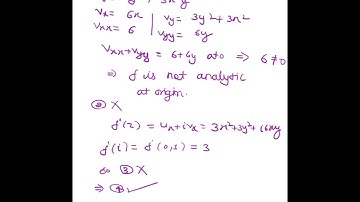 Vx = 6x | Vy = 3y² + 3x²
Vxx = 6 | Vyy = 6y
Vxx + Vyy = 6+6y at 0 ⇒ 6 ≠ 0
⇒ f is not analytic
at origin.
② X
f'(z) = ux + ivx = 3x²+3y²+i6xy
f'(i) = f'(0,1) = 3
③ X
⇒ ④ ✓